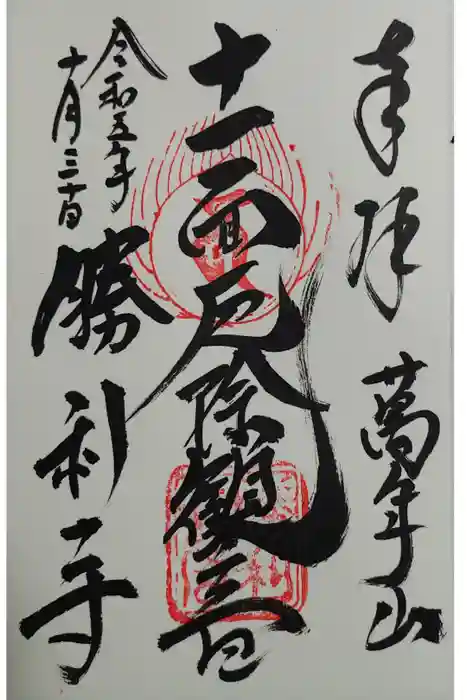 奉拝 萬年山
十一面厄除観世音
令和五年
十月三十日
勝利寺